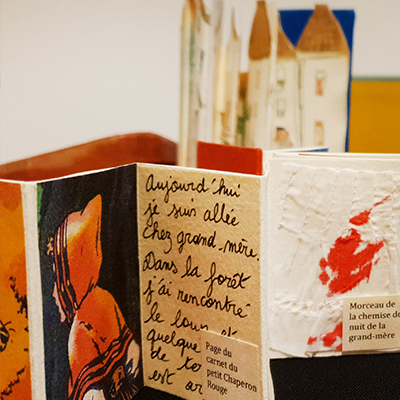 Aujourd'hui
je suis allée
chez grand-mère.
Dans la forêt
j'ai rencontré
le loup et
quelque
de to
est ar
Page du
carnet du
petit Chaperon
Rouge
Morceau de
la chemise de
nuit de la
grand-mère